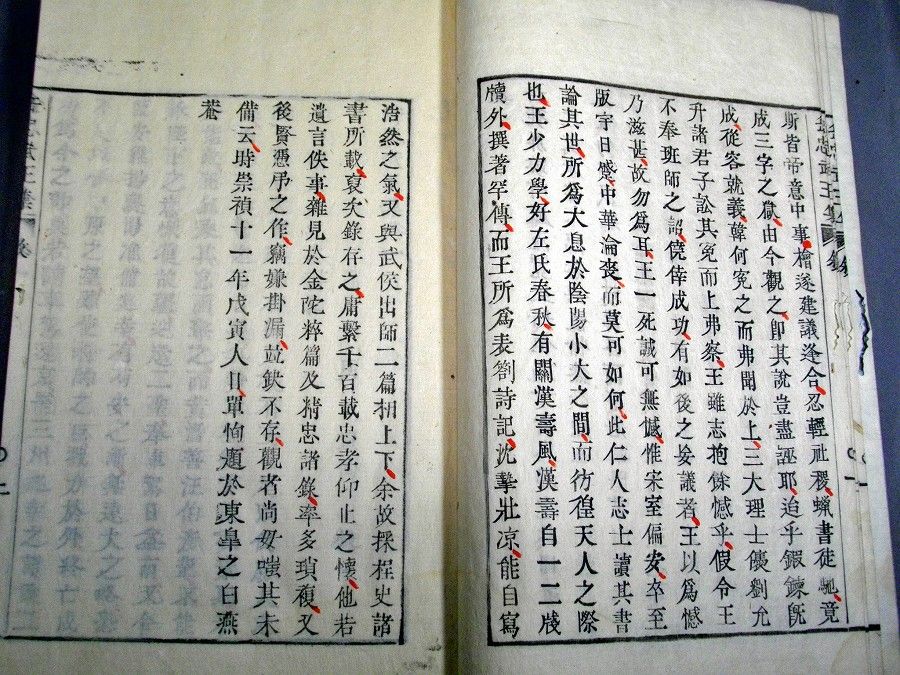 斯皆帝意中事檜遂建議逢合忍輕社稷蠟書徒馳竟
成三字之獄由今觀之卽其說豈盡誣耶迨乎鍜鍊旣
成從容就義韓何究之而弗聞於上三大理士㒜劉允
升諸君子訟其冤而上弗察王雖志抱餘憾乎假令王
不奉班師之詔僥倖成功有如後之妄議者王以爲憾
乃滋甚故勿爲耳王一死誠可無憾惟宋室偏安卒至
版宇日蹙中華淪喪而莫可如何此仁人志士讀其書
論其世所爲大息於陰陽小大之間而彷徨天人之際
也王少力學好左氏春秋有關漢壽風漢壽自一二牋
牘外撰著罕傳而王所爲表劄詩記沈摯壯凉能自寫
浩然之氣又與武侯出師二篇相上下余故採桯史諸
書所載裒次錄存之庸繫千百載忠孝仰止之懷他若
遺言佚事雜見於金陀粹篇及精忠諸錄率多瑣複又
後賢憑弔之作竊嫌掛漏竝鈌不存觀者尚毋嗤其未
備云時崇禎十一年戊寅人日單恂題於東皐之白燕
菴